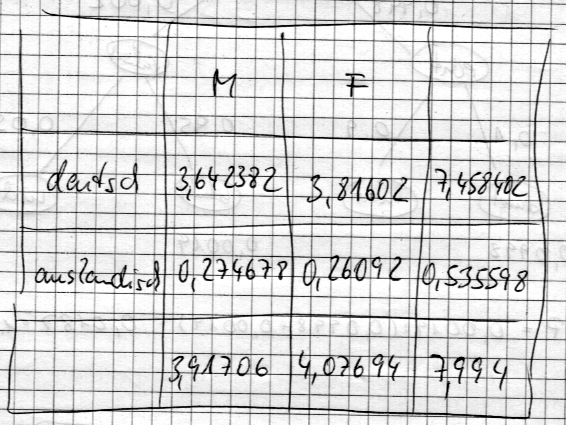 M F
deutsch 3,642382 3,81602 7,458402
ausländisch 0,274678 0,26092 0,535598
3,91706 4,07694 7,994